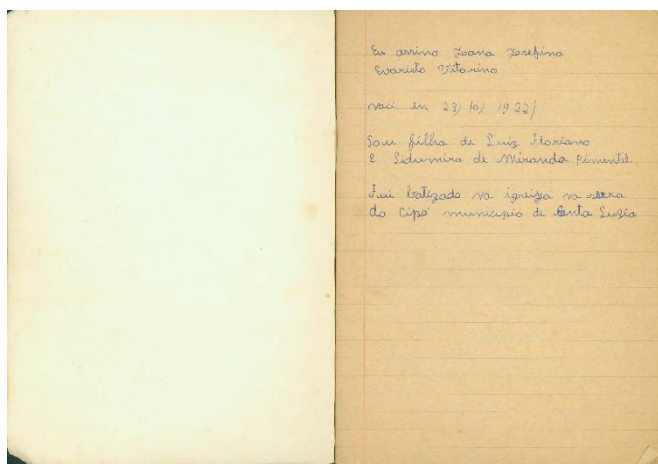 Eu assino Joana Josefina
Evaristo Vitorino
naci em 23/10/1922/
Sou filha de Luiz Floriano
E Lidumira de Miranda Pimentel
Fui batizada na igreija na serra
do Cipó municipio de Santa Luzia